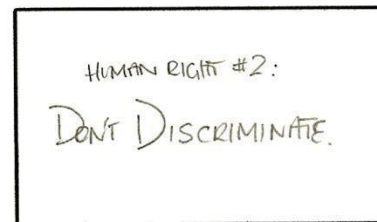 HUMAN RIGHT #2:
DON'T DISCRIMINATE.